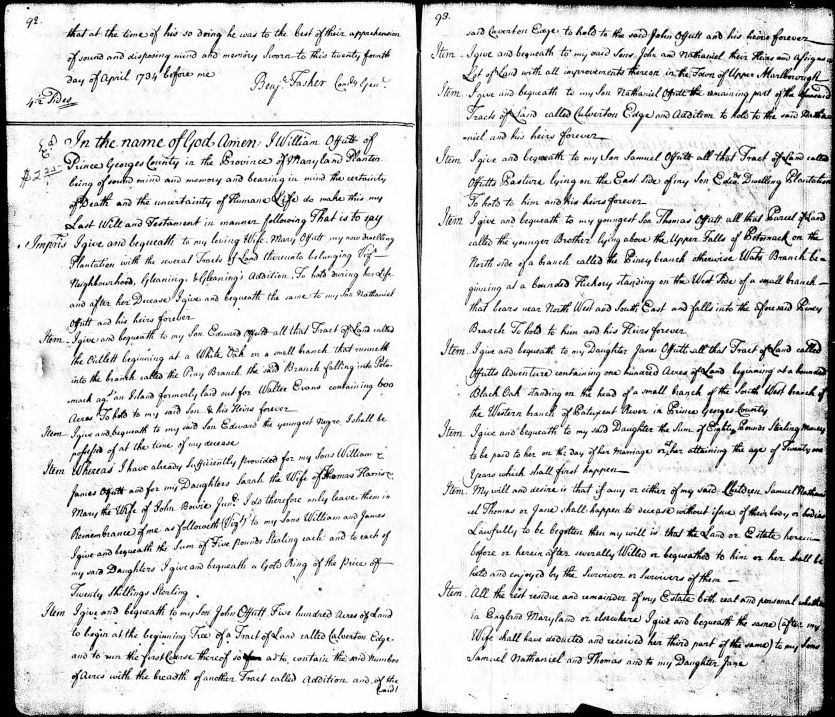 92.
that at the time of his so doing he was to the best of their apprehension
of sound and disposing mind and memory Sworn to this twenty fourth
day of April 1734 before me
Benjn. Tasker Comry. Genl.
4 1/2 Sides
Exd
In the name of God Amen I William Offutt of
Prince Georges County in the Province of Maryland Planter
being of sound mind and memory and bearing in mind the certainty
of Death and the uncertainty of Humane Life do make this my
Last Will and Testament in manner following That is to say
Imprs. I give and bequeath to my loving Wife Mary Offutt my now dwelling
Plantation with the several Tracts of Land thereunto belonging Vizt.
Neighbourhood, Gleaning, & Gleaning's Addition, To hold during her Life
and after her Decease I give and bequeath the same to my Son Nathaniel
Offutt and his heirs forever
Item I give and bequeath to my Son Edward Offutt all that Tract of Land called
the Outlett beginning at a White Oak on a small branch that runneth
into the branch called the Piny Branch the said Branch falling into Poto-
mack agt. an Island formerly laid out for Walter Evans containing 600
Acres To hold to my said Son & his Heirs forever
Item I give and bequeath to my said Son Edward the youngest Negro I shall be
possessed of at the time of my decease
Item Whereas I have already sufficiently provided for my Sons William &
James Offutt and for my Daughters Sarah the Wife of Thomas Harris &
Mary the Wife of John Bowie Junr. I do therefore only leave them in
Remembrance of me as followeth (Vizt.) to my Sons William and James
I give and bequeath the Sum of Five Pounds Sterling each and to each of
my said Daughters I give and bequeath a Gold Ring of the Price of
Twenty Shillings Sterling
Item I give and bequeath to my Son John Offutt Five hundred Acres of Land
to begin at the beginning Tree of a Tract of Land called Calverton Edge
and to run the first Course thereof so as to contain the said Number
of Acres with the breadth of another Tract called Addition and of the
(said
93.
said Calverton Edge to hold to the said John Offutt and his heirs forever
Item I give and bequeath to my said Sons John and Nathaniel their Heirs and Assigns a
Lot of Land with all improvements thereon in the Town of Upper Marlborough
Item I give and bequeath to my Son Nathaniel Offutt the remaining part of the aforesaid
Tracts of Land called Calverton Edge and Addition to hold to the said Natha-
niel and his heirs forever
Item I give and bequeath to my Son Samuel Offutt all that Tract of Land called
Offutts Pasture lying on the East side of my Son Edwds. Dwelling Plantation
To hold to him and his heirs forever
Item I give and bequeath to my youngest Son Thomas Offutt all that Parcel of Land
called the younger Brother lying above the Upper Falls of Potomack on the
North side of a branch called the Piney branch otherwise Watts Branch be-
ginning at a bounded Hickory standing on the West side of a small branch
that bears near North West and South East and falls into the aforesaid Piney
Branch To hold to him and his Heirs forever
Item I give and bequeath to my Daughter Jane Offutt all that Tract of Land called
Offutts Adventure containing one hundred Acres of Land beginning at a bounded
Black Oak standing on the head of a small branch of the South West branch of
the Western branch of Patuxent River in Prince Georges County
Item I give and bequeath to my said Daughter the Sum of Eighty Pounds Sterling Money
to be paid to her on the day of her Marriage or at her attaining the age of Twenty one
Years which shall first happen
Item My will and desire is that if any or either of my said Children Samuel Nathani-
el Thomas or Jane shall happen to decease without issue of their body or bodies
Lawfully to be begotten then my will is that the Land or Estate herein-
before or herein after severally Willed or bequeathed to him or her shall be
held and enjoyed by the Survivor or Survivors of them
Item All the rest residue and remainder of my Estate both real and personal whether
in England Maryland or elsewhere I give and bequeath the same (after my
Wife shall have deducted and received her third part of the same) to my Sons
Samuel Nathaniel and Thomas and to my Daughter Jane